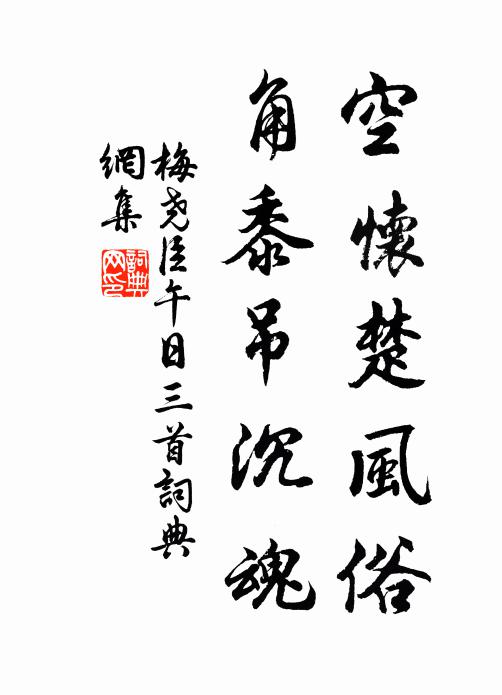 空懷楚風俗
角黍吊沉魂
梅堯臣午日三首詞典
網集
詞典
网印